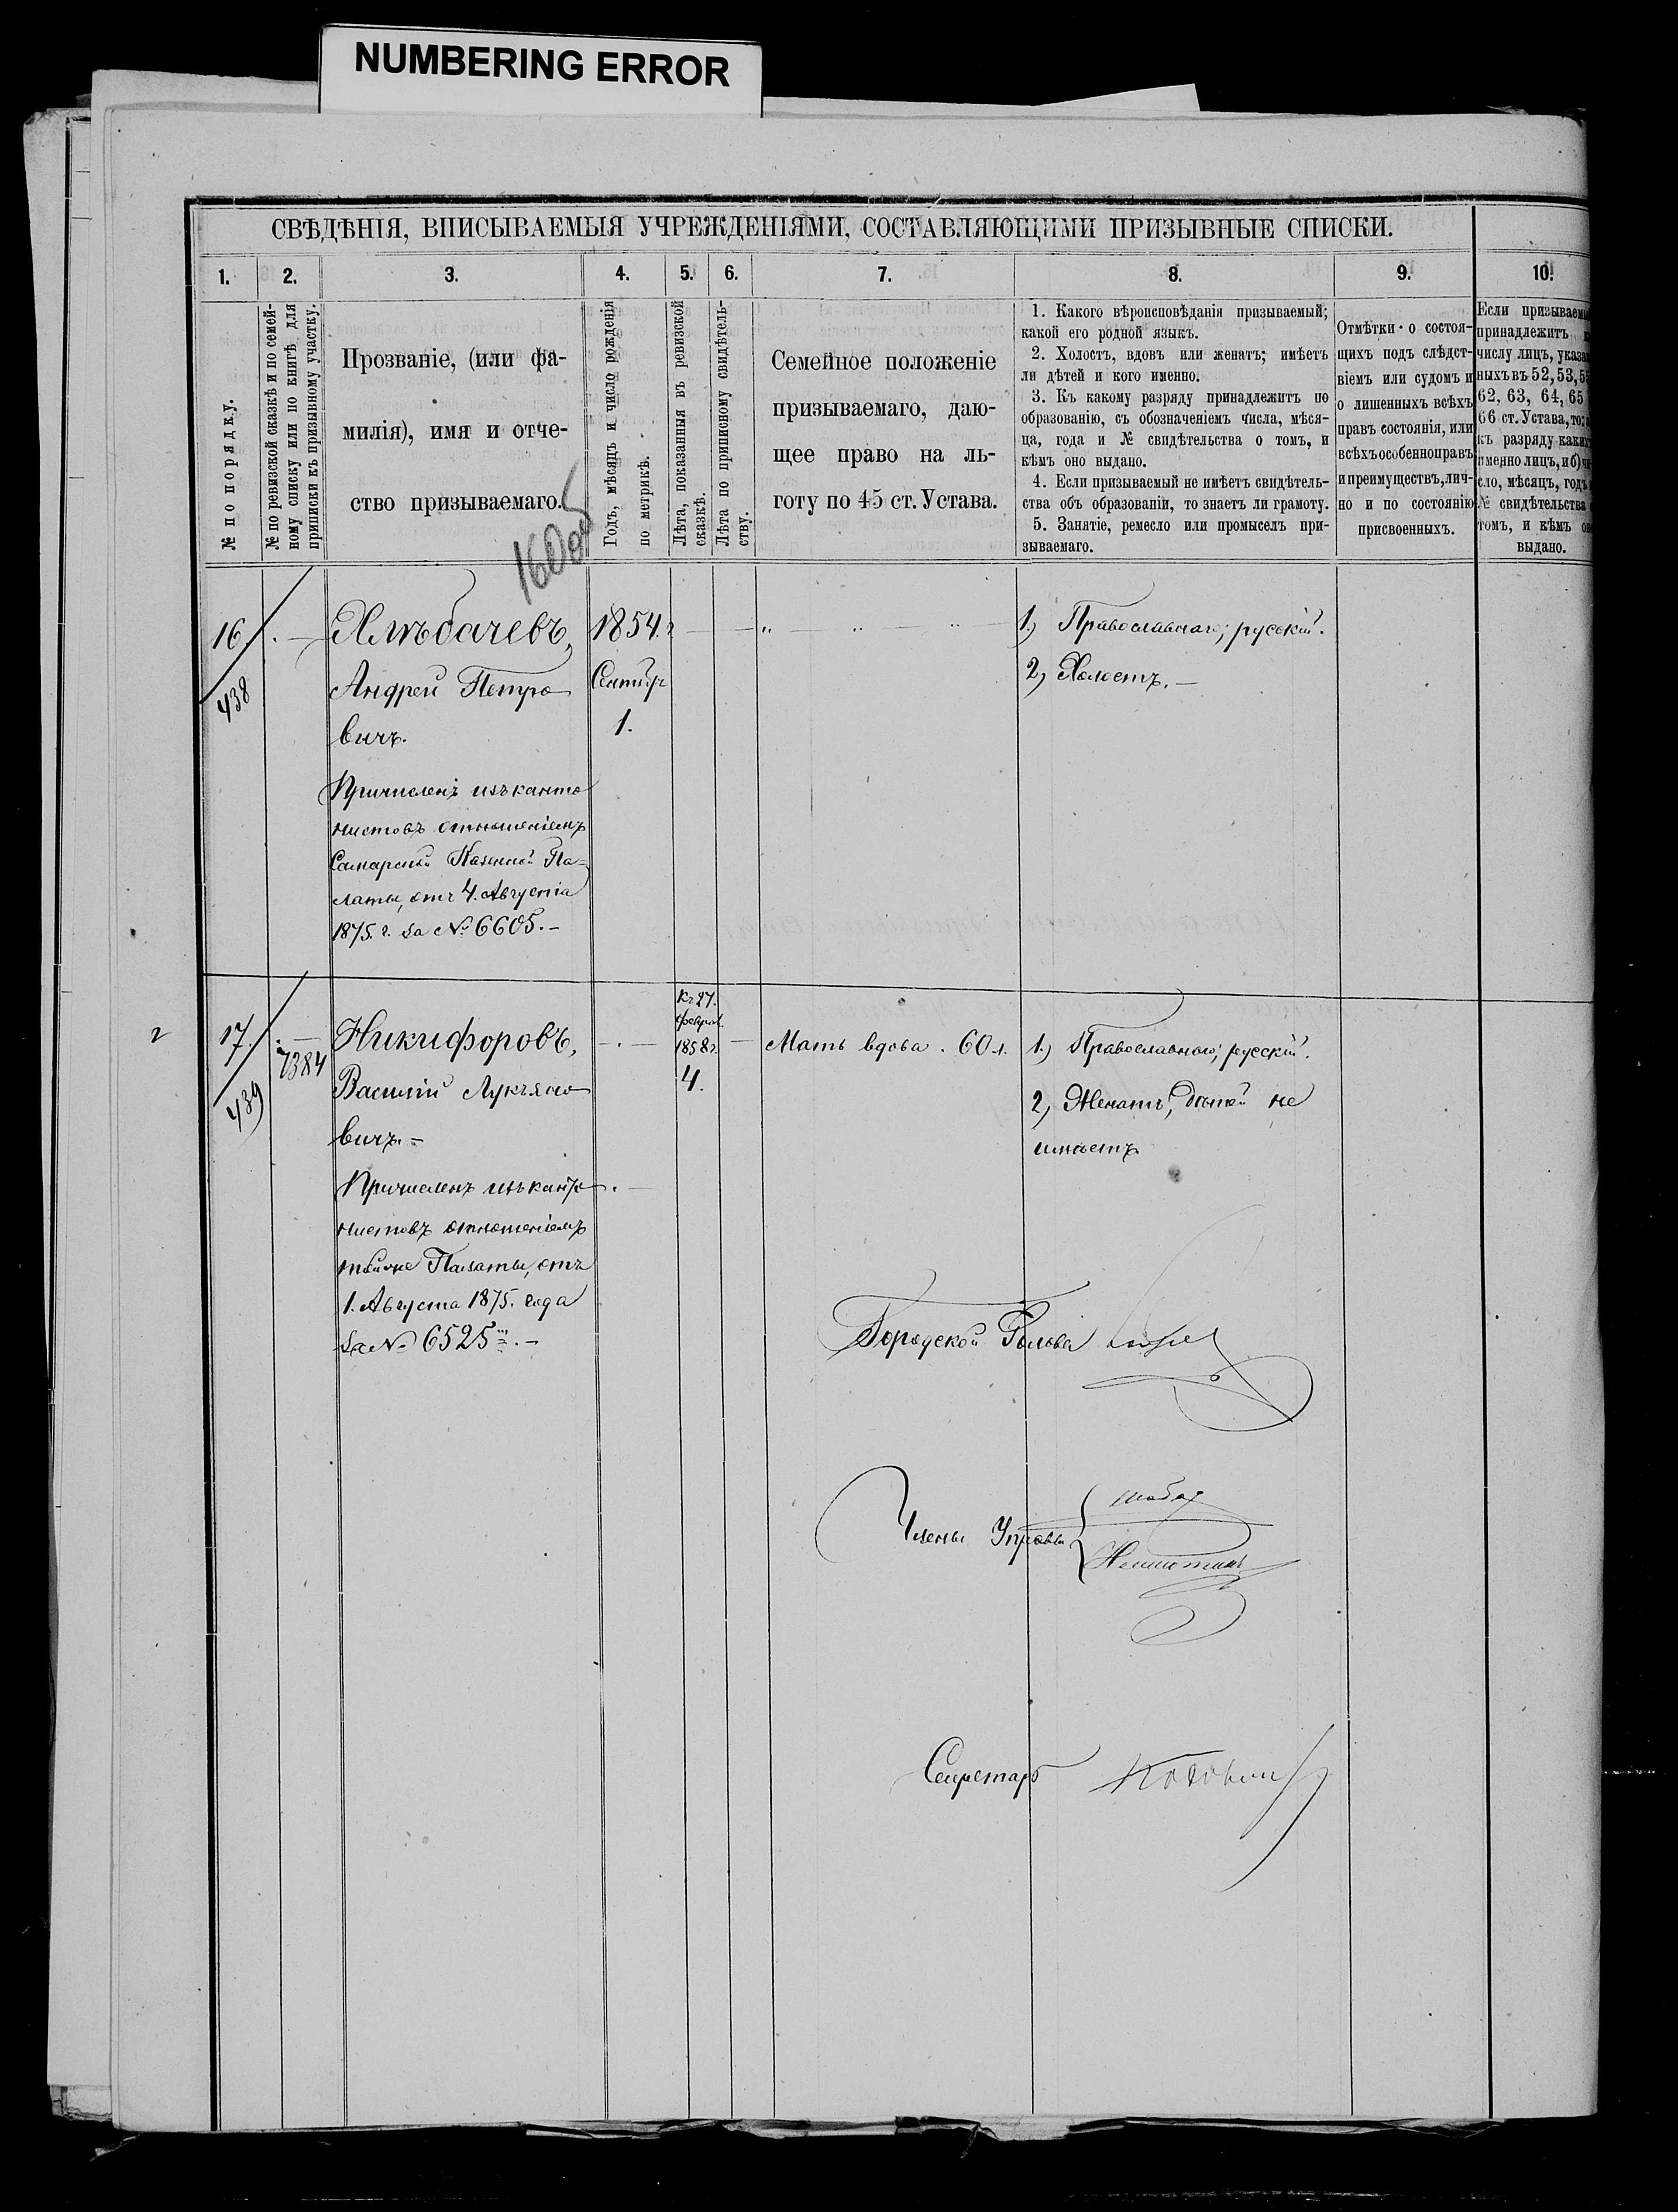 NUMBERING ERROR
СВѢДѢНІЯ, ВПИСЫВАЕМЫЯ УЧРЕЖДЕНІЯМИ, СОСТАВЛЯЮЩИМИ ПРИЗЫВНЫЕ СПИСКИ.
1.
2.
3.
4.
5.
6.
7.
8.
9.
10.
№ по порядку.
№ по ревизской сказкѣ и по семей-
ному списку или по книгѣ для
приписки къ призывному участку.
Прозваніе, (или фа-
милія), имя и отче-
ство призываемаго.
Годъ, мѣсяцъ и число рожденія
по метрикѣ.
Лѣта, показанныя въ ревизской
сказкѣ.
Лѣта по приписному свидѣтель-
ству.
Семейное положеніе
призываемаго, даю-
щее право на ль-
готу по 45 ст. Устава.
1. Какого вѣроисповѣданія призываемый;
какой его родной языкъ.
2. Холостъ, вдовъ или женатъ; имѣетъ
ли дѣтей и кого именно.
3. Къ какому разряду принадлежитъ по
образованію, съ обозначеніемъ числа, мѣся-
ца, года и № свидѣтельства о томъ, и
кѣмъ оно выдано.
4. Если призываемый не имѣетъ свидѣтель-
ства объ образованіи, то знаетъ ли грамоту.
5. Занятіе, ремесло или промыселъ при-
зываемаго.
Отмѣтки о состоя-
щихъ подъ слѣдст-
віемъ или судомъ и
о лишенныхъ всѣхъ
правъ состоянія, или
всѣхъ особенно правъ
и преимуществъ, лич-
но и по состоянію
присвоенныхъ.
Если призываемы
принадлежитъ
числу лицъ, указа
ныхъ въ 52, 53, 55
62, 63, 64, 65
66 ст. Устава, то:
къ разряду какихъ
именно лицъ, и б) чи
сло, мѣсяцъ, годъ
№ свидѣтельства
томъ, и кѣмъ он
выдано.
16.
438
Хлѣбачевъ,
Андрей Петро
вичъ.
Причисленъ изъ канто
нистовъ отношеніемъ
Самарской Казенной Па-
латы, отъ 4. Августа
1875. г. за № 6605. –
1854. г
Сентяр
1.
1.) Православнаго; русскій.
2) Холостъ. –
2
17.
439
7384
Никифоровъ,
Василій Лукьяно
вичъ. –
Причисленъ изъ канто
нистовъ отношеніемъ
той же Палаты, отъ
1. Августа 1875. года
за № 6525. –
Къ 27.
Феврал.
1858 г.
4.
Мать вдова. 60 л.
1.) Православнаго; русскій.
2) Женатъ, дѣтей не
имѣетъ
Городской Голова
Члены Управы
Секретарь